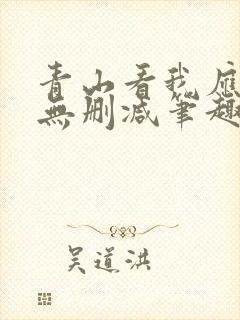 青山看我應
無刪減筆趣
吴道洪